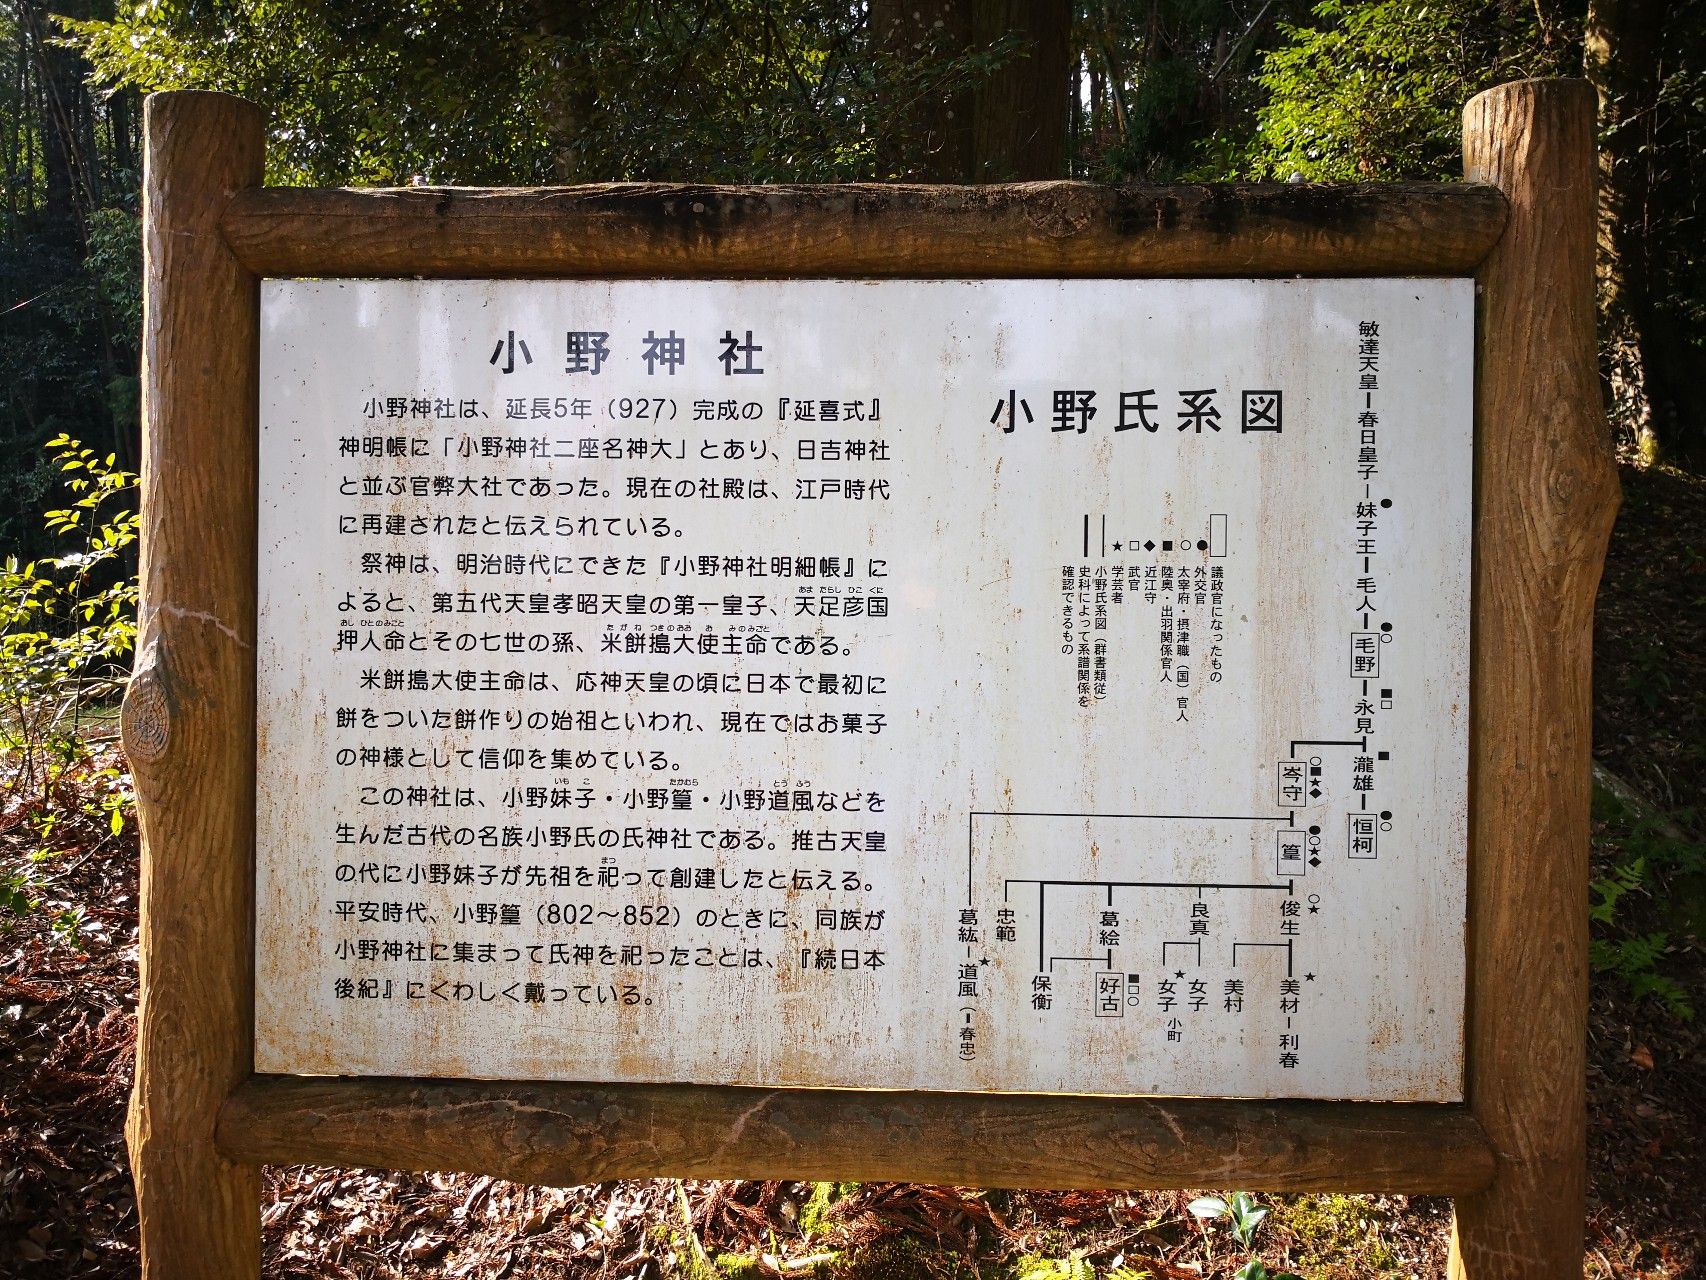 小野神社
小野神社は、延長5年（927）完成の『延喜式』
神明帳に「小野神社二座名神大」とあり、日吉神社
と並ぶ官弊大社であった。現在の社殿は、江戸時代
に再建されたと伝えられている。
祭神は、明治時代にできた『小野神社明細帳』に
あま たらし ひこ くに
よると、第五代天皇孝昭天皇の第一皇子、天足彦国
おし ひとのみこと たがね つきのおお お みのみこと
押人命とその七世の孫、米餅搗大使主命である。
米餅搗大使主命は、応神天皇の頃に日本で最初に
餅をついた餅作りの始祖といわれ、現在ではお菓子
の神様として信仰を集めている。
いも こ たかむら とう ふう
この神社は、小野妹子・小野篁・小野道風などを
生んだ古代の名族小野氏の氏神社である。推古天皇
まつ
の代に小野妹子が先祖を祀って創建したと伝える。
平安時代、小野篁（802〜852）のときに、同族が
小野神社に集まって氏神を祀ったことは、『続日本
後紀』にくわしく戴っている。
小野氏系図
敏達天皇ー春日皇子ー妹子王ー毛人ー毛野ー永見
●
●○
■□
瀧雄ー恒柯
■
●○
岑守
○■★◆
篁
●○★◆
俊生
○★
良真
葛絵
忠範
葛絃ー道風（ー春忠）
★
美材ー利春
★
美村
女子
女子 小町
★
好古
■□○
保衡
議政官になったもの
●外交官
○太宰府・摂津職（国）官人
■陸奥・出羽関係官人
◆近江守
□武官
★学芸者
小野氏系図（群書類従）
史料によって系譜関係を
確認できるもの